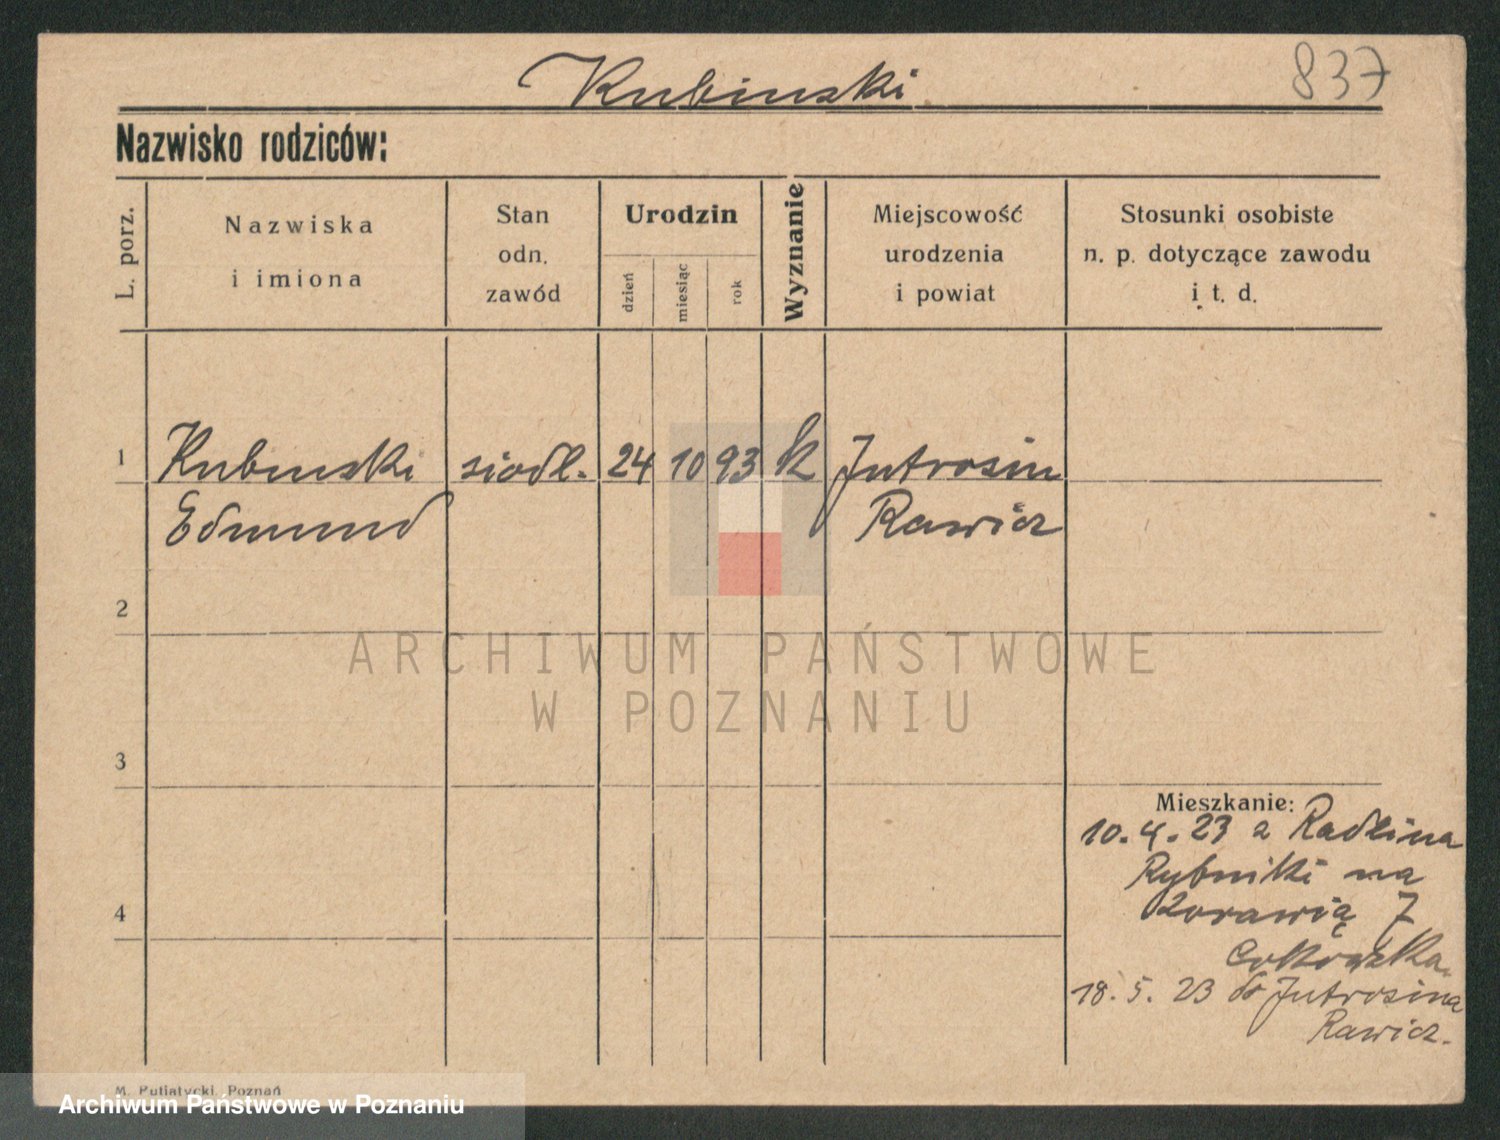 Kubinski
837
Nazwisko rodziców:
L. porz.
Nazwiska
i imiona
Stan
odn.
zawód
Urodzin
dzień
miesiąc
rok
Wyznanie
Miejscowość
urodzenia
i powiat
Stosunki osobiste
n. p. dotyczące zawodu
i t. d.
1 Kubinski siodl. 24 10 93 k Jutrosin
Edmund Rawicz
2
ARCHIWUM PAŃSTWOWE
W POZNANIU
3
Mieszkanie:
10.4.23 z Radlina
Rybniki na
Żórawią 7
18.5.23 do Jutrosina
Rawicz.
4
M. Putiatycki, Poznań
Archiwum Państwowe w Poznaniu